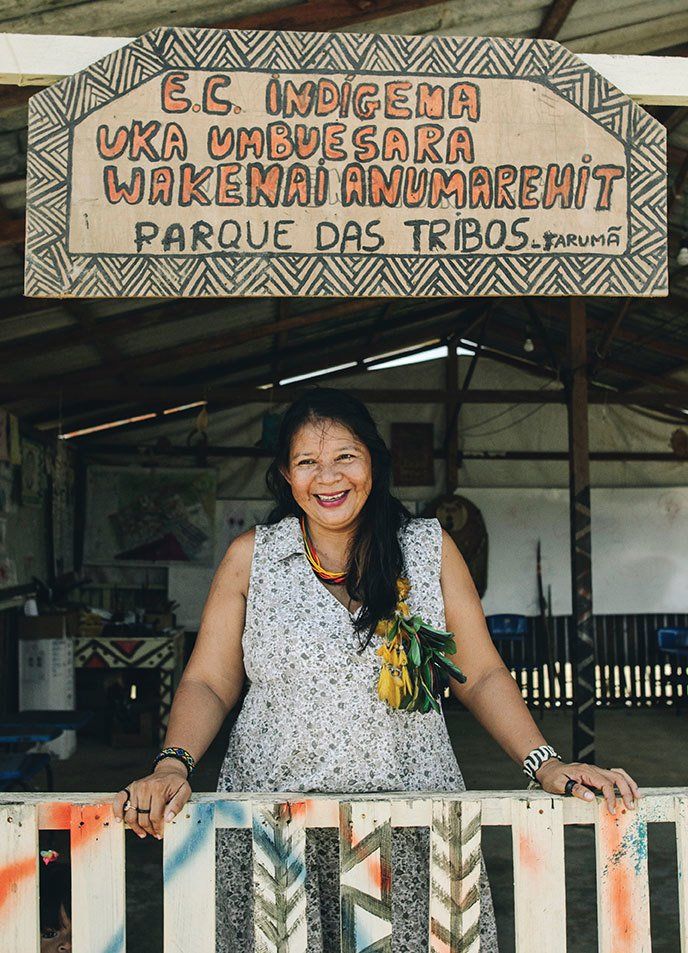 E.C. INDÍGENA
UKA UMBUESARA
WAKENAI ANUMAREHIT
PARQUE DAS TRIBOS - TARUMÃ